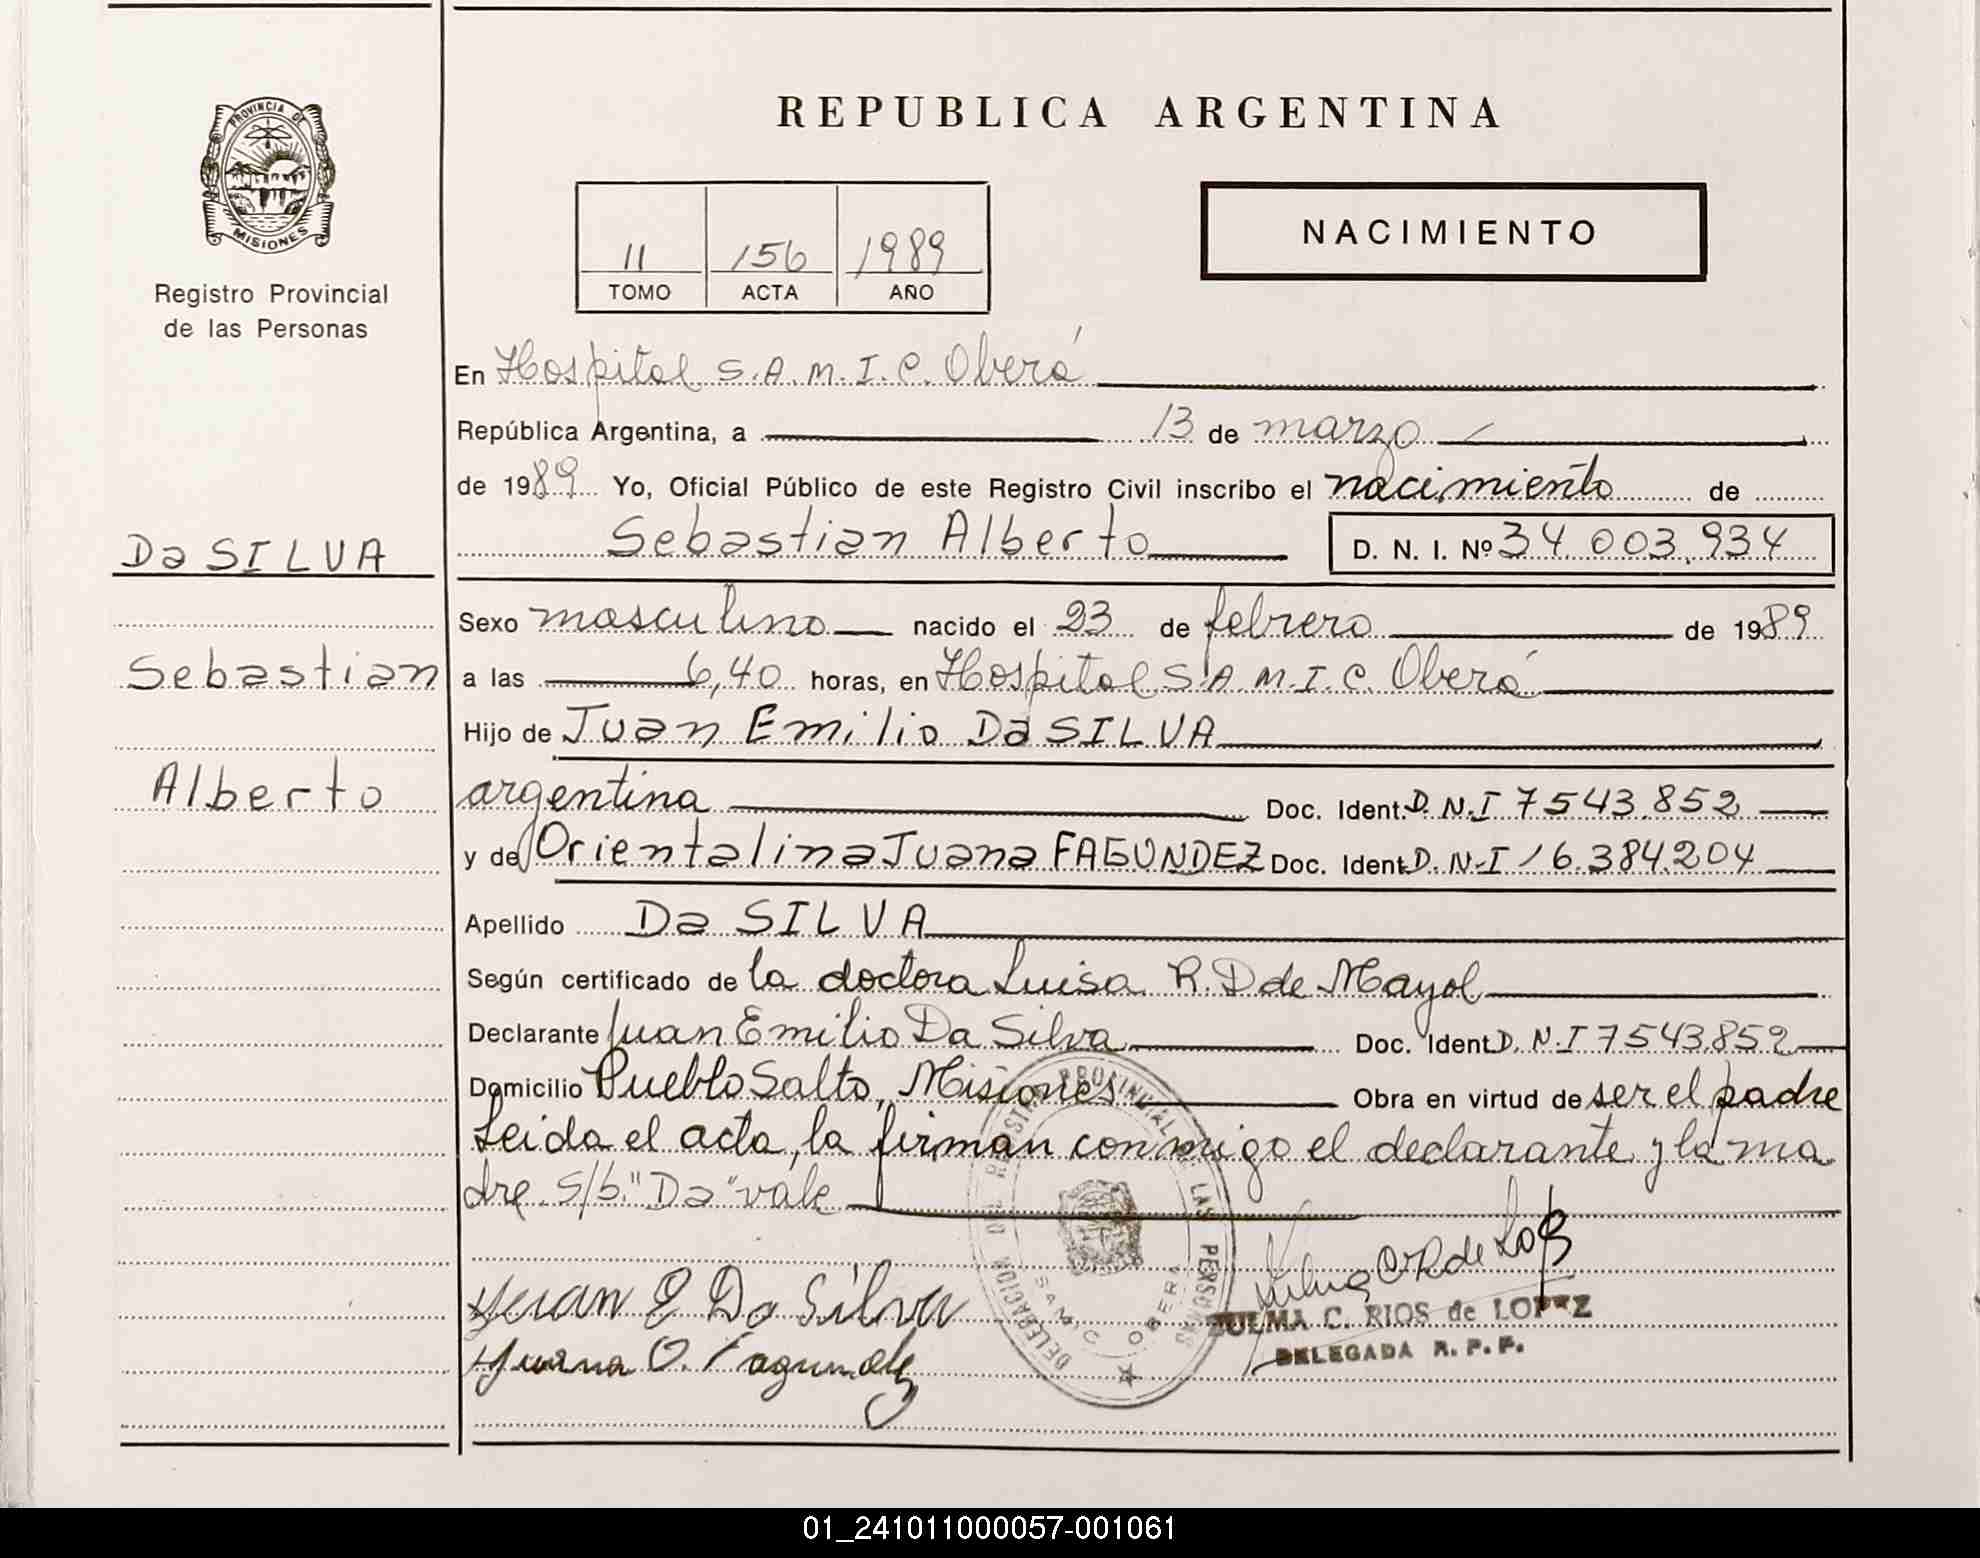 PROVINCIA DE
MISIONES
Registro Provincial
de las Personas
Da SILVA
Sebastian
Alberto
REPUBLICA ARGENTINA
11 156 1989
TOMO ACTA AÑO
NACIMIENTO
En Hospital S.A.M.I.C. Oberá
República Argentina, a 13 de marzo
de 1989 Yo, Oficial Público de este Registro Civil inscribo el nacimiento de
Sebastian Alberto D. N. I. Nº 34 003.934
Sexo masculino nacido el 23 de febrero de 1989
a las 6,40 horas, en Hospital S.A.M.I.C. Oberá
Hijo de Juan Emilio Da SILVA
argentina Doc. Ident. D.N.I 7543.852
y de Orientalina Juana FAGUNDEZ Doc. Ident D.N.I 16.384.204
Apellido Da SILVA
Según certificado de la doctora Luisa R. D de Mayol
Declarante Juan Emilio Da Silva Doc. Ident D.N.I 7543.852
Domicilio Pueblo Salto, Misiones Obra en virtud de ser el padre
Leida el acta, la firman conmigo el declarante y la ma
dre. S/b. "Da" vale
Juan E Da Silva
Juana O. Fagundez
DELEGACION DEL REGISTRO PROVINCIAL DE LAS PERSONAS
SAMIC OBERA
Zulma C R de Lopez
ZULMA C. RIOS de LOPEZ
DELEGADA R. P. P.
01_241011000057-001061